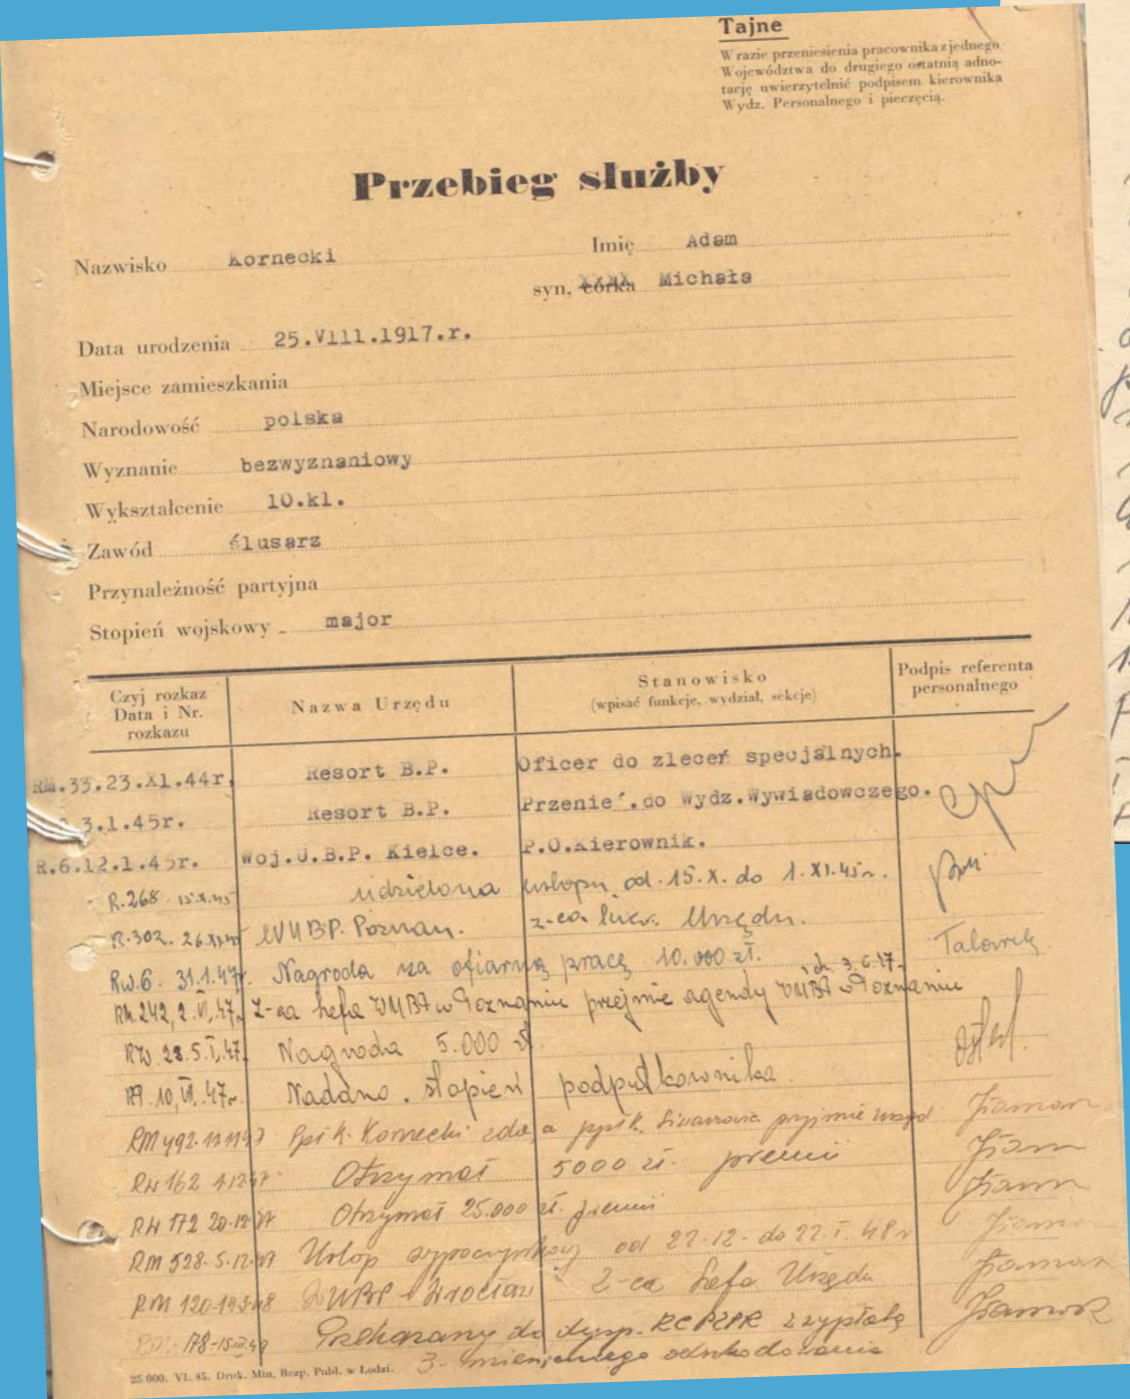 Tajne
W razie przeniesienia pracownika z jednego
Województwa do drugiego ostatnią adno-
tację uwierzytelnić podpisem kierownika
Wydz. Personalnego i pieczęcią.
Przebieg służby
Nazwisko Kornecki Imię Adam
syn, córka Michała
Data urodzenia 25.VIII.1917.r.
Miejsce zamieszkania
Narodowość polska
Wyznanie bezwyznaniowy
Wykształcenie 10.kl.
Zawód ślusarz
Przynależność partyjna
Stopień wojskowy major
Czyj rozkaz Data i Nr. rozkazu Nazwa Urzędu Stanowisko (wpisać funkcje, wydział, sekcje) Podpis referenta personalnego
RM.33.23.XI.44r. Resort B.P. Oficer do zleceń specjalnych.
3.1.45r. Resort B.P. Przenieś.do Wydz.Wywiadowczego.
R.6.12.1.45r. Woj.U.B.P. Kielce. P.O.Kierownik.
R.268 15.X.45 udzielono urlopu od 15.X. do 1.XI.45r.
R.302. 26.XI.45 WUBP. Poznań. z-ca kier. Urzędu.
Rw.6 31.1.47r. Nagroda za ofiarną pracę 10.000 zł.
RM.242, 2.VI.47r. Z-ca szefa WUBP w Poznaniu przejmie agendy WUBP w Poznaniu dn. 3.6.47.
28.5.I.47. Nagroda 5.000 zł
10.VI.47r. Nadano stopień podpułkownika.
RM 492 Ppłk. Kornecki zda a ppłk. przyjmie urząd
RW 162 Otrzymał 5000 zł. premii
RW 172 20-12-47 Otrzymał 25.000 zł. premii
RM 528-5-12-47 Urlop wypoczynkowy od 22-12- do 22.I.48r
RM 120 WUBP Wrocław Z-ca Szefa Urzędu
178-15 Przekazany do dysp. KC PZPR z wypłatą
3-miesięcznego odszkodowania
25.000. VI. 45. Druk. Min. Bezp. Publ. w Łodzi.